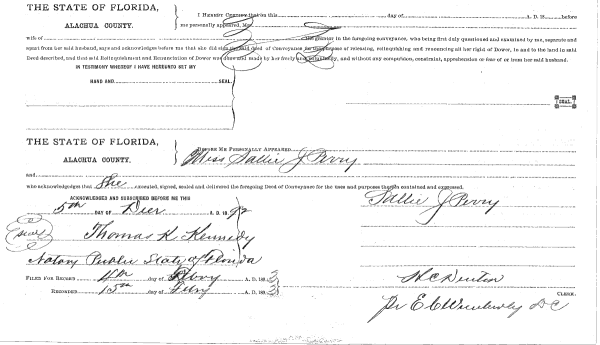 THE STATE OF FLORIDA,
ALACHUA COUNTY.
I HEREBY CERTIFY, That on this day of A. D. 18 before
me personally appeared, Mrs.
wife of the grantor in the foregoing conveyance, who being first duly questioned and examined by me, separate and
apart from her said husband, says and acknowledges before me that she did sign the said deed of Conveyance for the purpose of releasing, relinquishing and renouncing all her right of Dower, in and to the land in said
Deed described, and that said Relinquishment and Renunciation of Dower was done and made by her freely and voluntarily, and without any compulsion, constraint, apprehension or fear of or from her said husband.
IN TESTIMONY WHEREOF I HAVE HEREUNTO SET MY
HAND AND SEAL.
SEAL.
THE STATE OF FLORIDA,
ALACHUA COUNTY.
BEFORE ME PERSONALLY APPEARED
Miss Sallie J Perry
and
who acknowledges that She executed, signed, sealed and delivered the foregoing deed of Conveyance for the uses and purposes therein contained and expressed.
ACKNOWLEDGED AND SUBSCRIBED BEFORE ME THIS
5th DAY OF Decr A. D. 1892
Sallie J Perry
Seal
Thomas K. Kennedy
Notary Public State of Florida
FILED FOR RECORD day of A. D. 1893
RECORDED 15th day of A. D. 1893
CLERK.
Pr E C DC